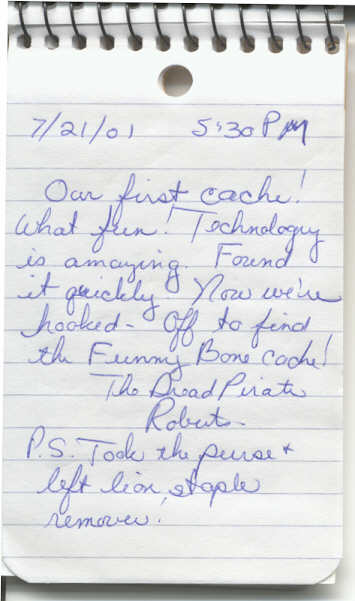 7/21/01 5:30 PM
Our first cache!
What fun! Technology
is amazing. Found
it quickly. Now we're
hooked - Off to find
the Funny Bone cache!
The Dread Pirate
Roberts
P.S. Took the purse +
left lion staple
remover.